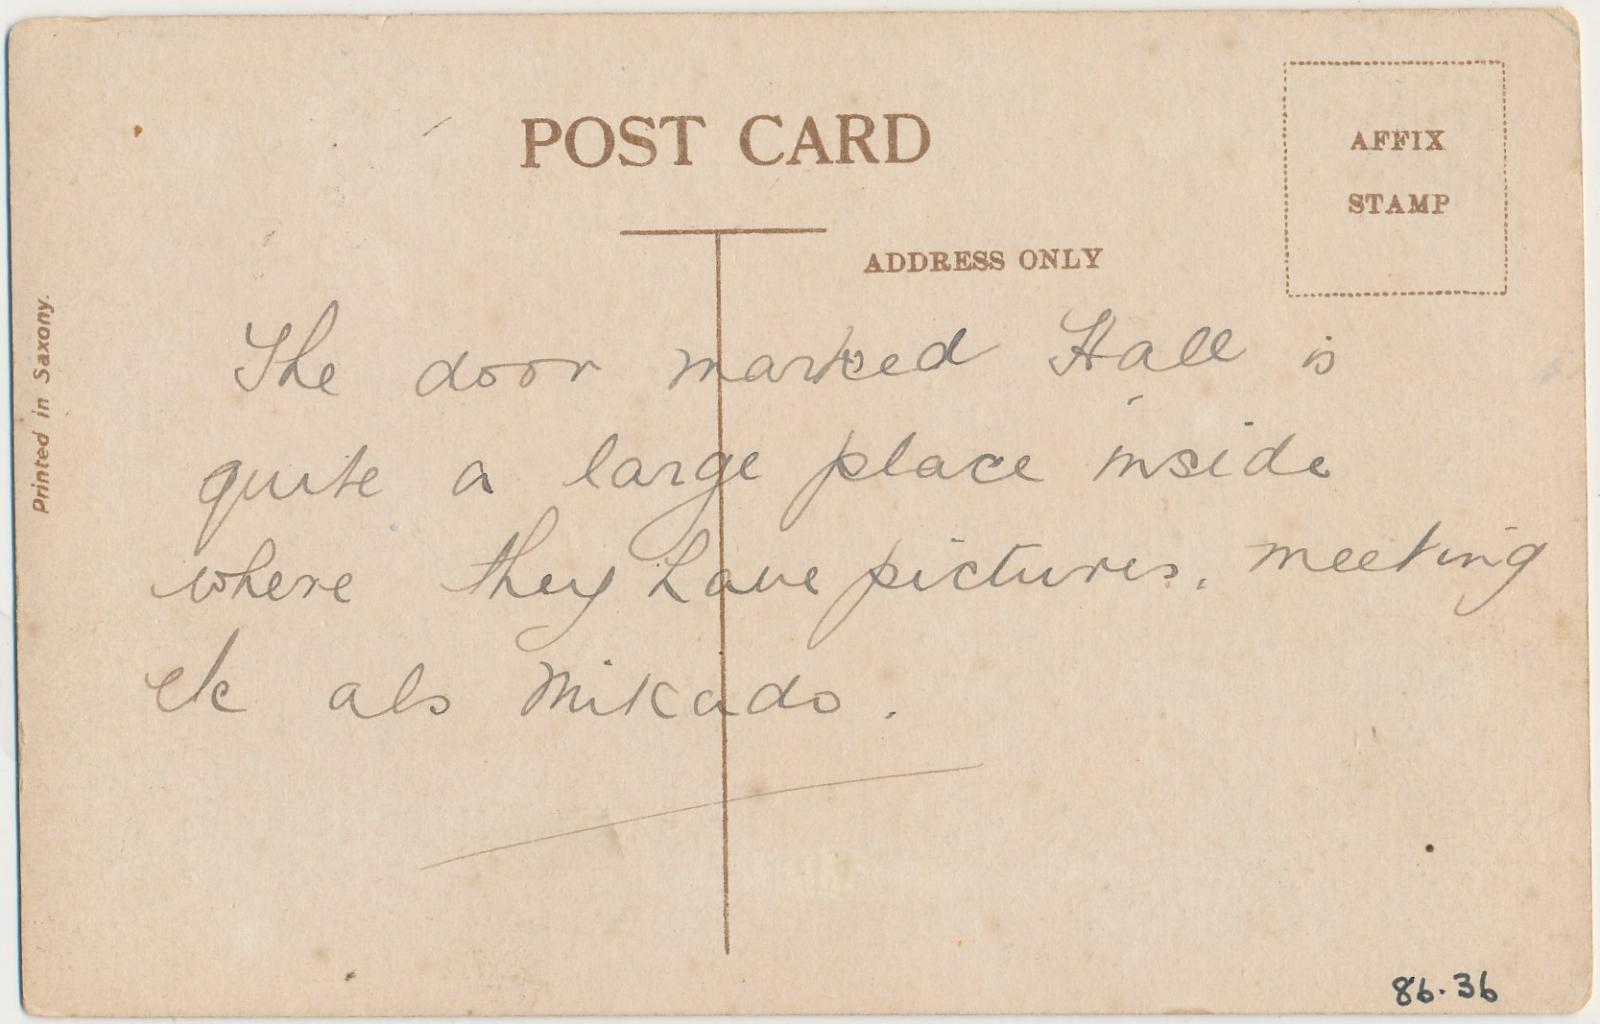 POST CARD
AFFIX
STAMP
ADDRESS ONLY
Printed in Saxony.
The door marked Hall is
quite a large place inside
where they have pictures, meeting
etc als Mikado.
86.36